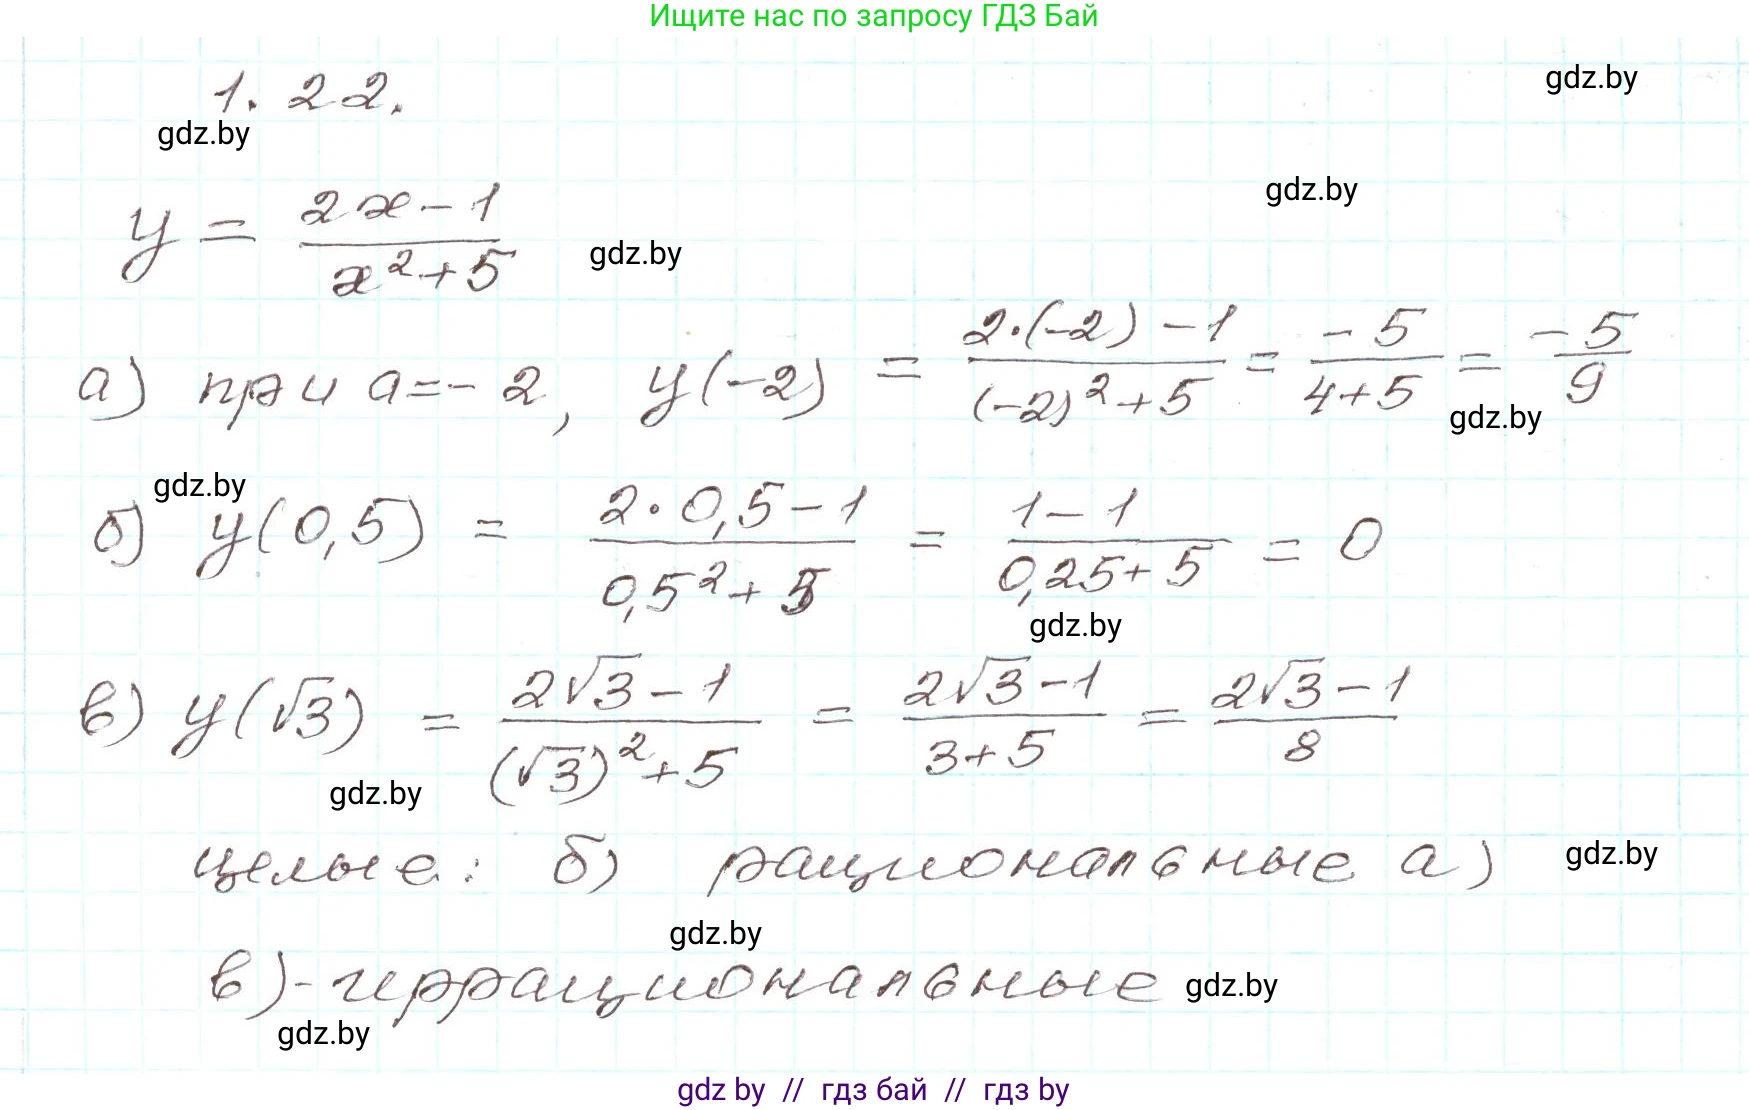 Ищите нас по запросу ГДЗ Бай
gdz.by
1.22.
gdz.by
gdz.by
y = (2x-1)/(x²+5)
gdz.by
а) при a=-2, y(-2) = (2·(-2)-1)/((-2)²+5) = (-5)/(4+5) = (-5)/9
gdz.by
gdz.by
б) y(0,5) = (2·0,5-1)/(0,5²+5) = (1-1)/(0,25+5) = 0
gdz.by
в) y(√3) = (2√3-1)/((√3)²+5) = (2√3-1)/(3+5) = (2√3-1)/8
gdz.by
целые: б) рациональные а)
gdz.by
gdz.by
в)-иррациональные
gdz.by
gdz.by
gdz.by // гдз бай // гдз.by